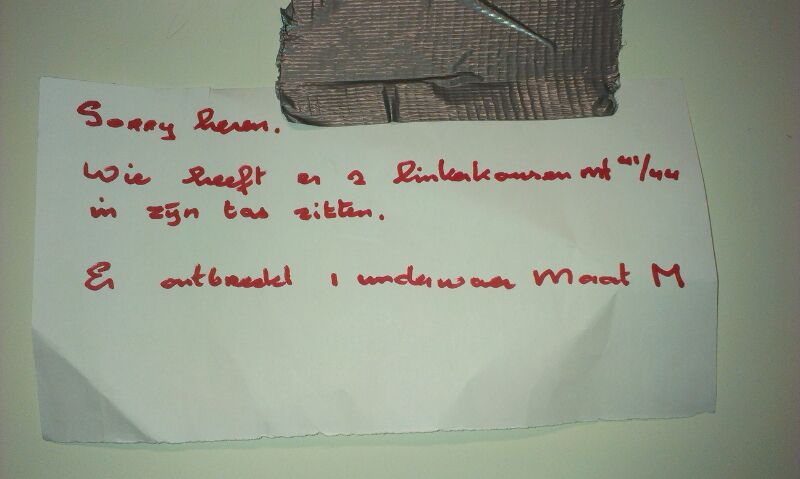 Sorry heren.
Wie heeft er 2 linkerkousen mt 41/44
in zijn tas zitten.
Er ontbreekt 1 underwear Maat M